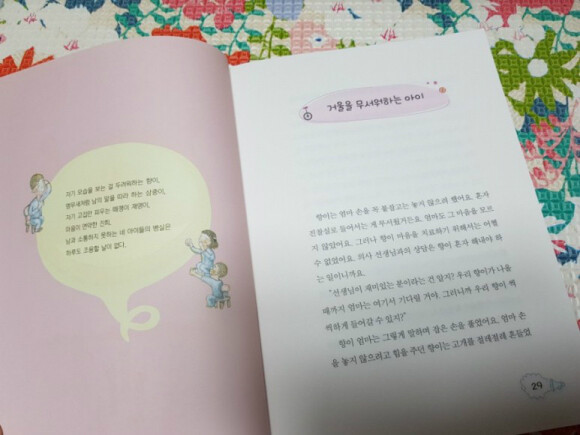 자기 모습을 보는 걸 두려워하는 향이,
앵무새처럼 남의 말을 따라 하는 삼촌이,
자기 고집만 피우는 떼쟁이 재영이,
마음이 연약한 건희,
남과 소통하지 못하는 네 아이들의 병실은
하루도 조용할 날이 없다.
거울을 무서워하는 아이
향이는 엄마 손을 꼭 붙잡고는 놓지 않으려 했어요. 혼자
진찰실로 들어서는 게 무서웠거든요. 엄마도 그 마음을 모르
지 않았어요. 그러나 향이 마음을 치료하기 위해서는 어쩔
수 없었어요. 의사 선생님과의 상담은 향이 혼자 해내야 하
는 일이니까요.
"선생님이 재미있는 분이라는 건 알지? 우리 향이가 나올
때까지 엄마는 여기서 기다릴 거야. 그러니까 우리 향이 씩
씩하게 들어갈 수 있지?"
향이 엄마는 그렇게 말하며 잡은 손을 풀었어요. 엄마 손
을 놓지 않으려고 힘을 주던 향이는 고개를 절레절레 흔들었
29